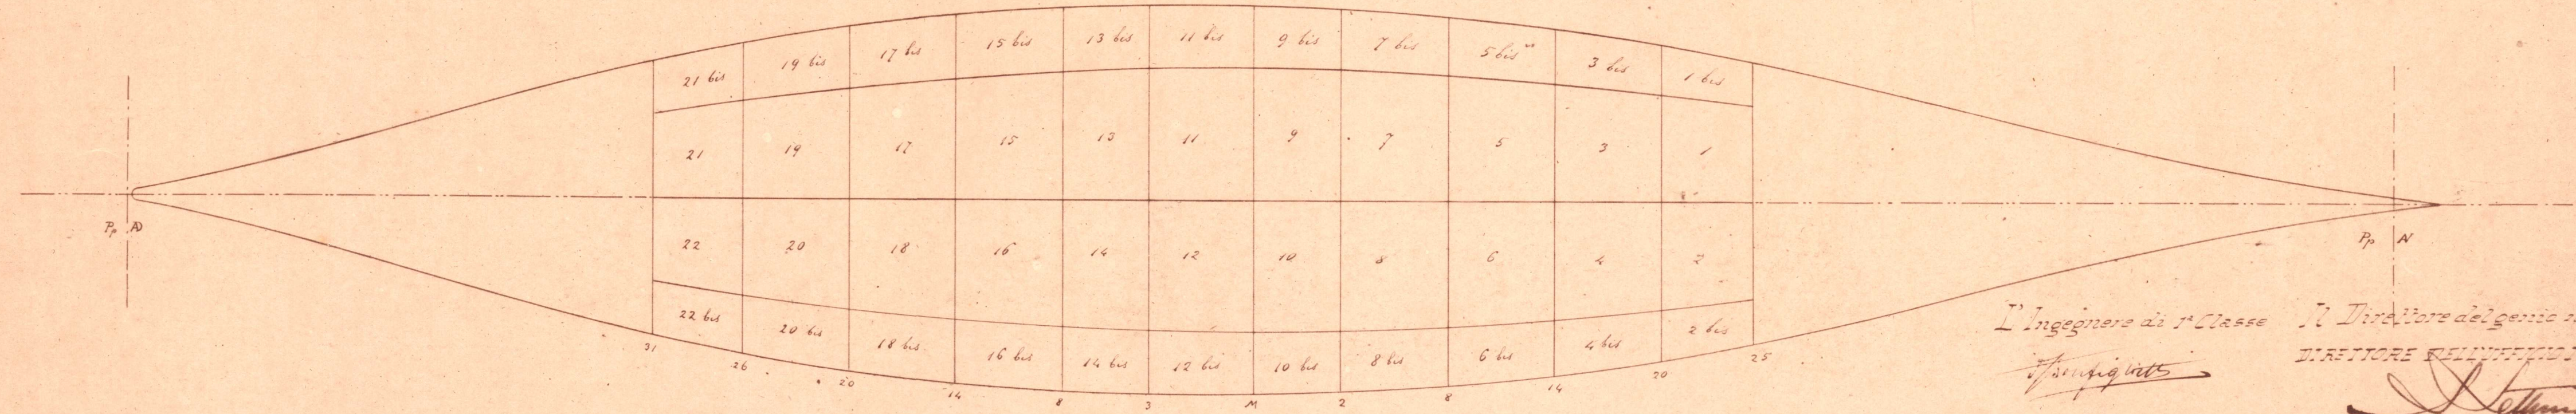 21 bis 19 bis 17 bis 15 bis 13 bis 11 bis 9 bis 7 bis 5 bis 3 bis 1 bis
21 19 17 15 13 11 9 7 5 3 1
Pp AD
22 20 18 16 14 12 10 8 6 4 2
Pp AV
22 bis 20 bis 18 bis 16 bis 14 bis 12 bis 10 bis 8 bis 6 bis 4 bis 2 bis
31 26 20 14 8 3 M 2 8 14 20 25
L'Ingegnere di 1ª Classe
Il Direttore del genio
DIRETTORE DELL'UFFICIO